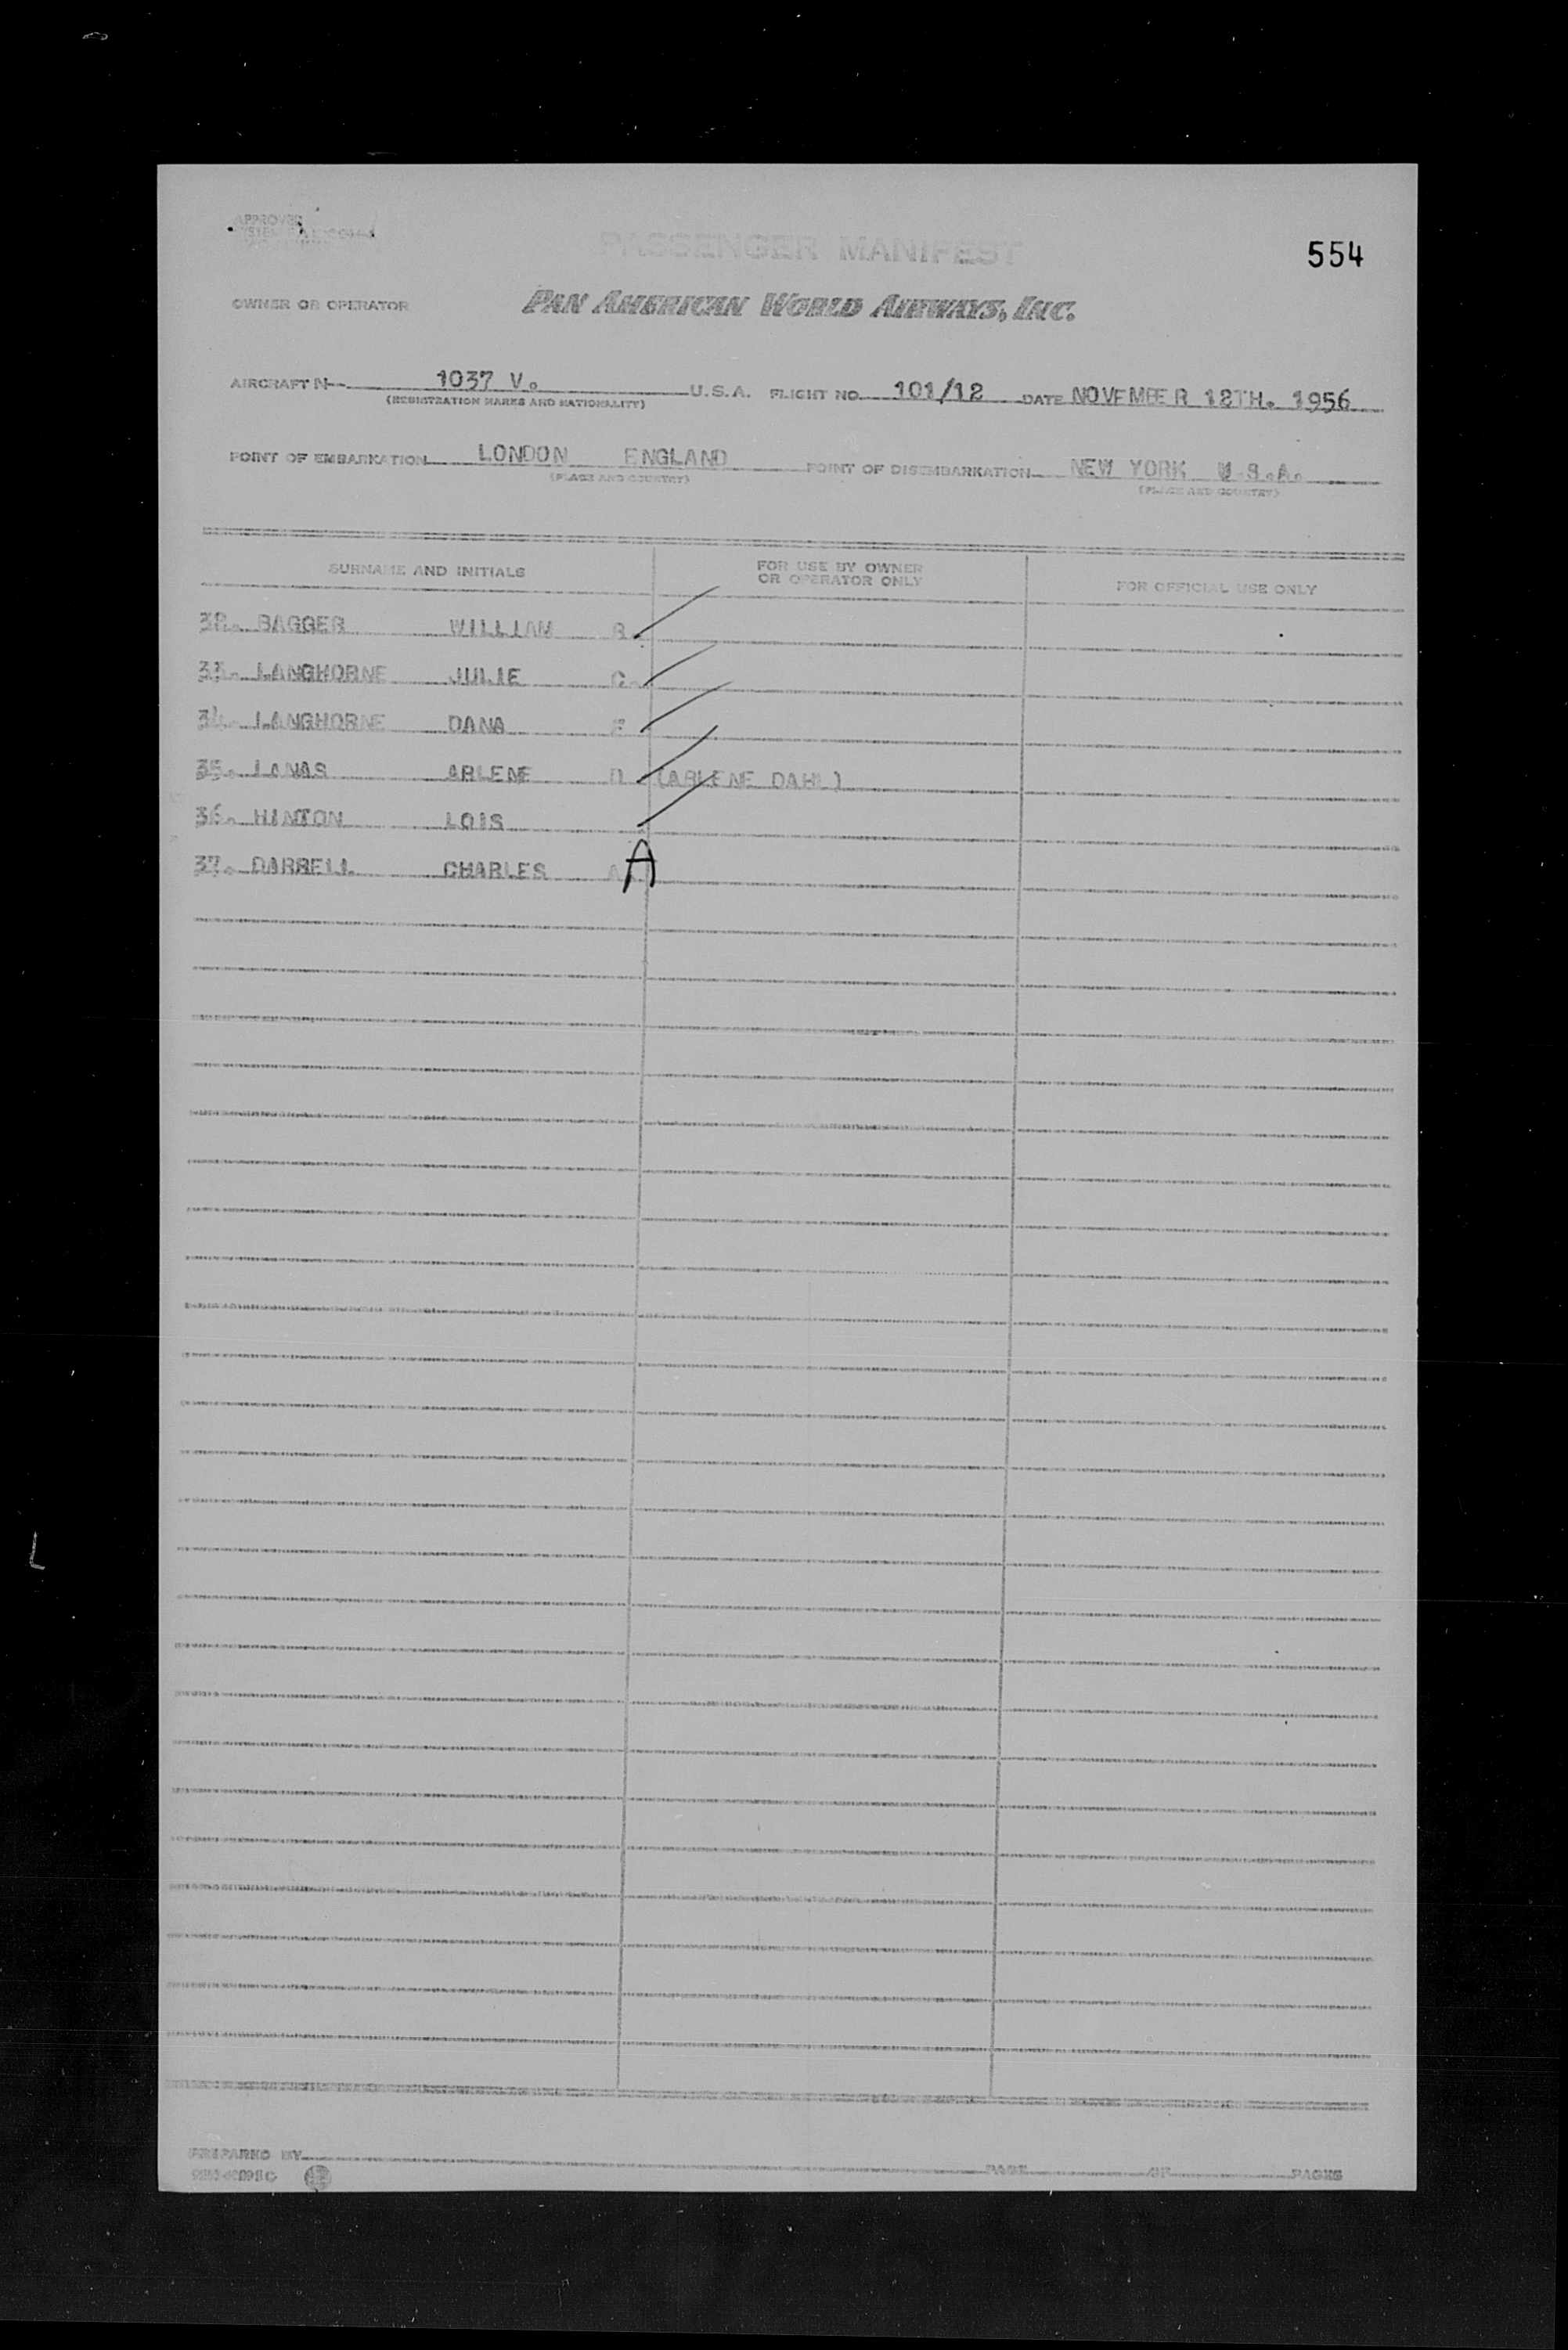 APPROVED
PASSENGER MANIFEST
554
OWNER OR OPERATOR PAN AMERICAN WORLD AIRWAYS, INC.
AIRCRAFT N 1037 V. U.S.A. FLIGHT NO. 101/12 DATE NOVEMBER 12TH. 1956
(REGISTRATION MARKS AND NATIONALITY)
POINT OF EMBARKATION LONDON ENGLAND POINT OF DISEMBARKATION NEW YORK U.S.A.
(PLACE AND COUNTRY) (PLACE AND COUNTRY)
SURNAME AND INITIALS FOR USE BY OWNER OR OPERATOR ONLY FOR OFFICIAL USE ONLY
32. BAGGER WILLIAM R.
33. LANGHORNE JULIE C.
34. LANGHORNE DANA F
35. LAMAS ARLENE D (ARLENE DAHL)
36. HINTON LOIS
37. DARRELL CHARLES A A
PREPARED BY PAGE OF PAGES